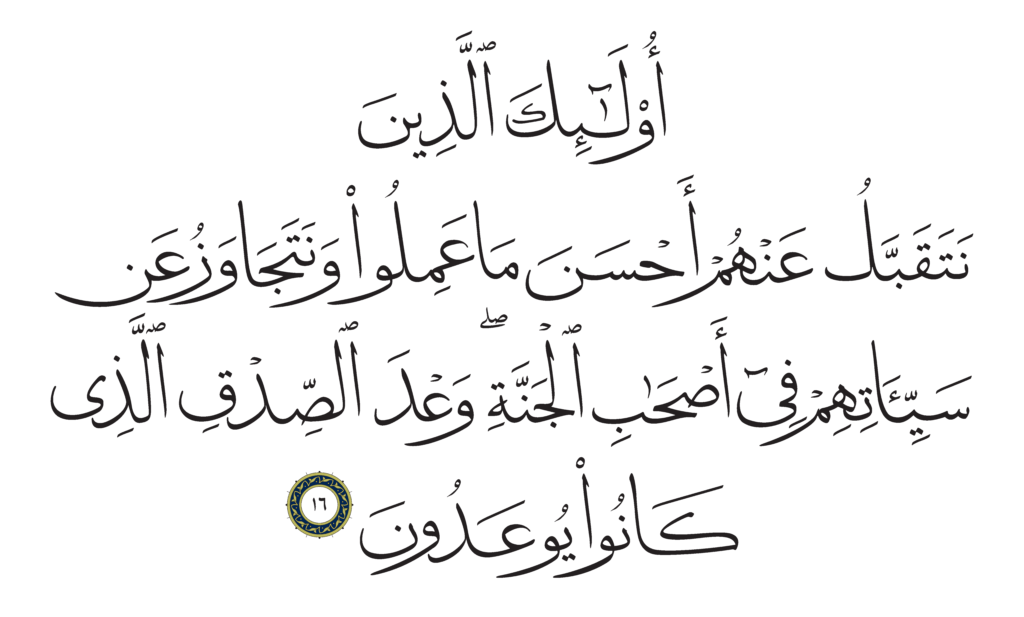 أُو۟لَـٰٓئِكَ ٱلَّذِينَ
نَتَقَبَّلُ عَنْهُمْ أَحْسَنَ مَا عَمِلُوا۟ وَنَتَجَاوَزُ عَن
سَيِّـَٔاتِهِمْ فِىٓ أَصْحَـٰبِ ٱلْجَنَّةِ ۖ وَعْدَ ٱلصِّدْقِ ٱلَّذِى
كَانُوا۟ يُوعَدُونَ ١٦